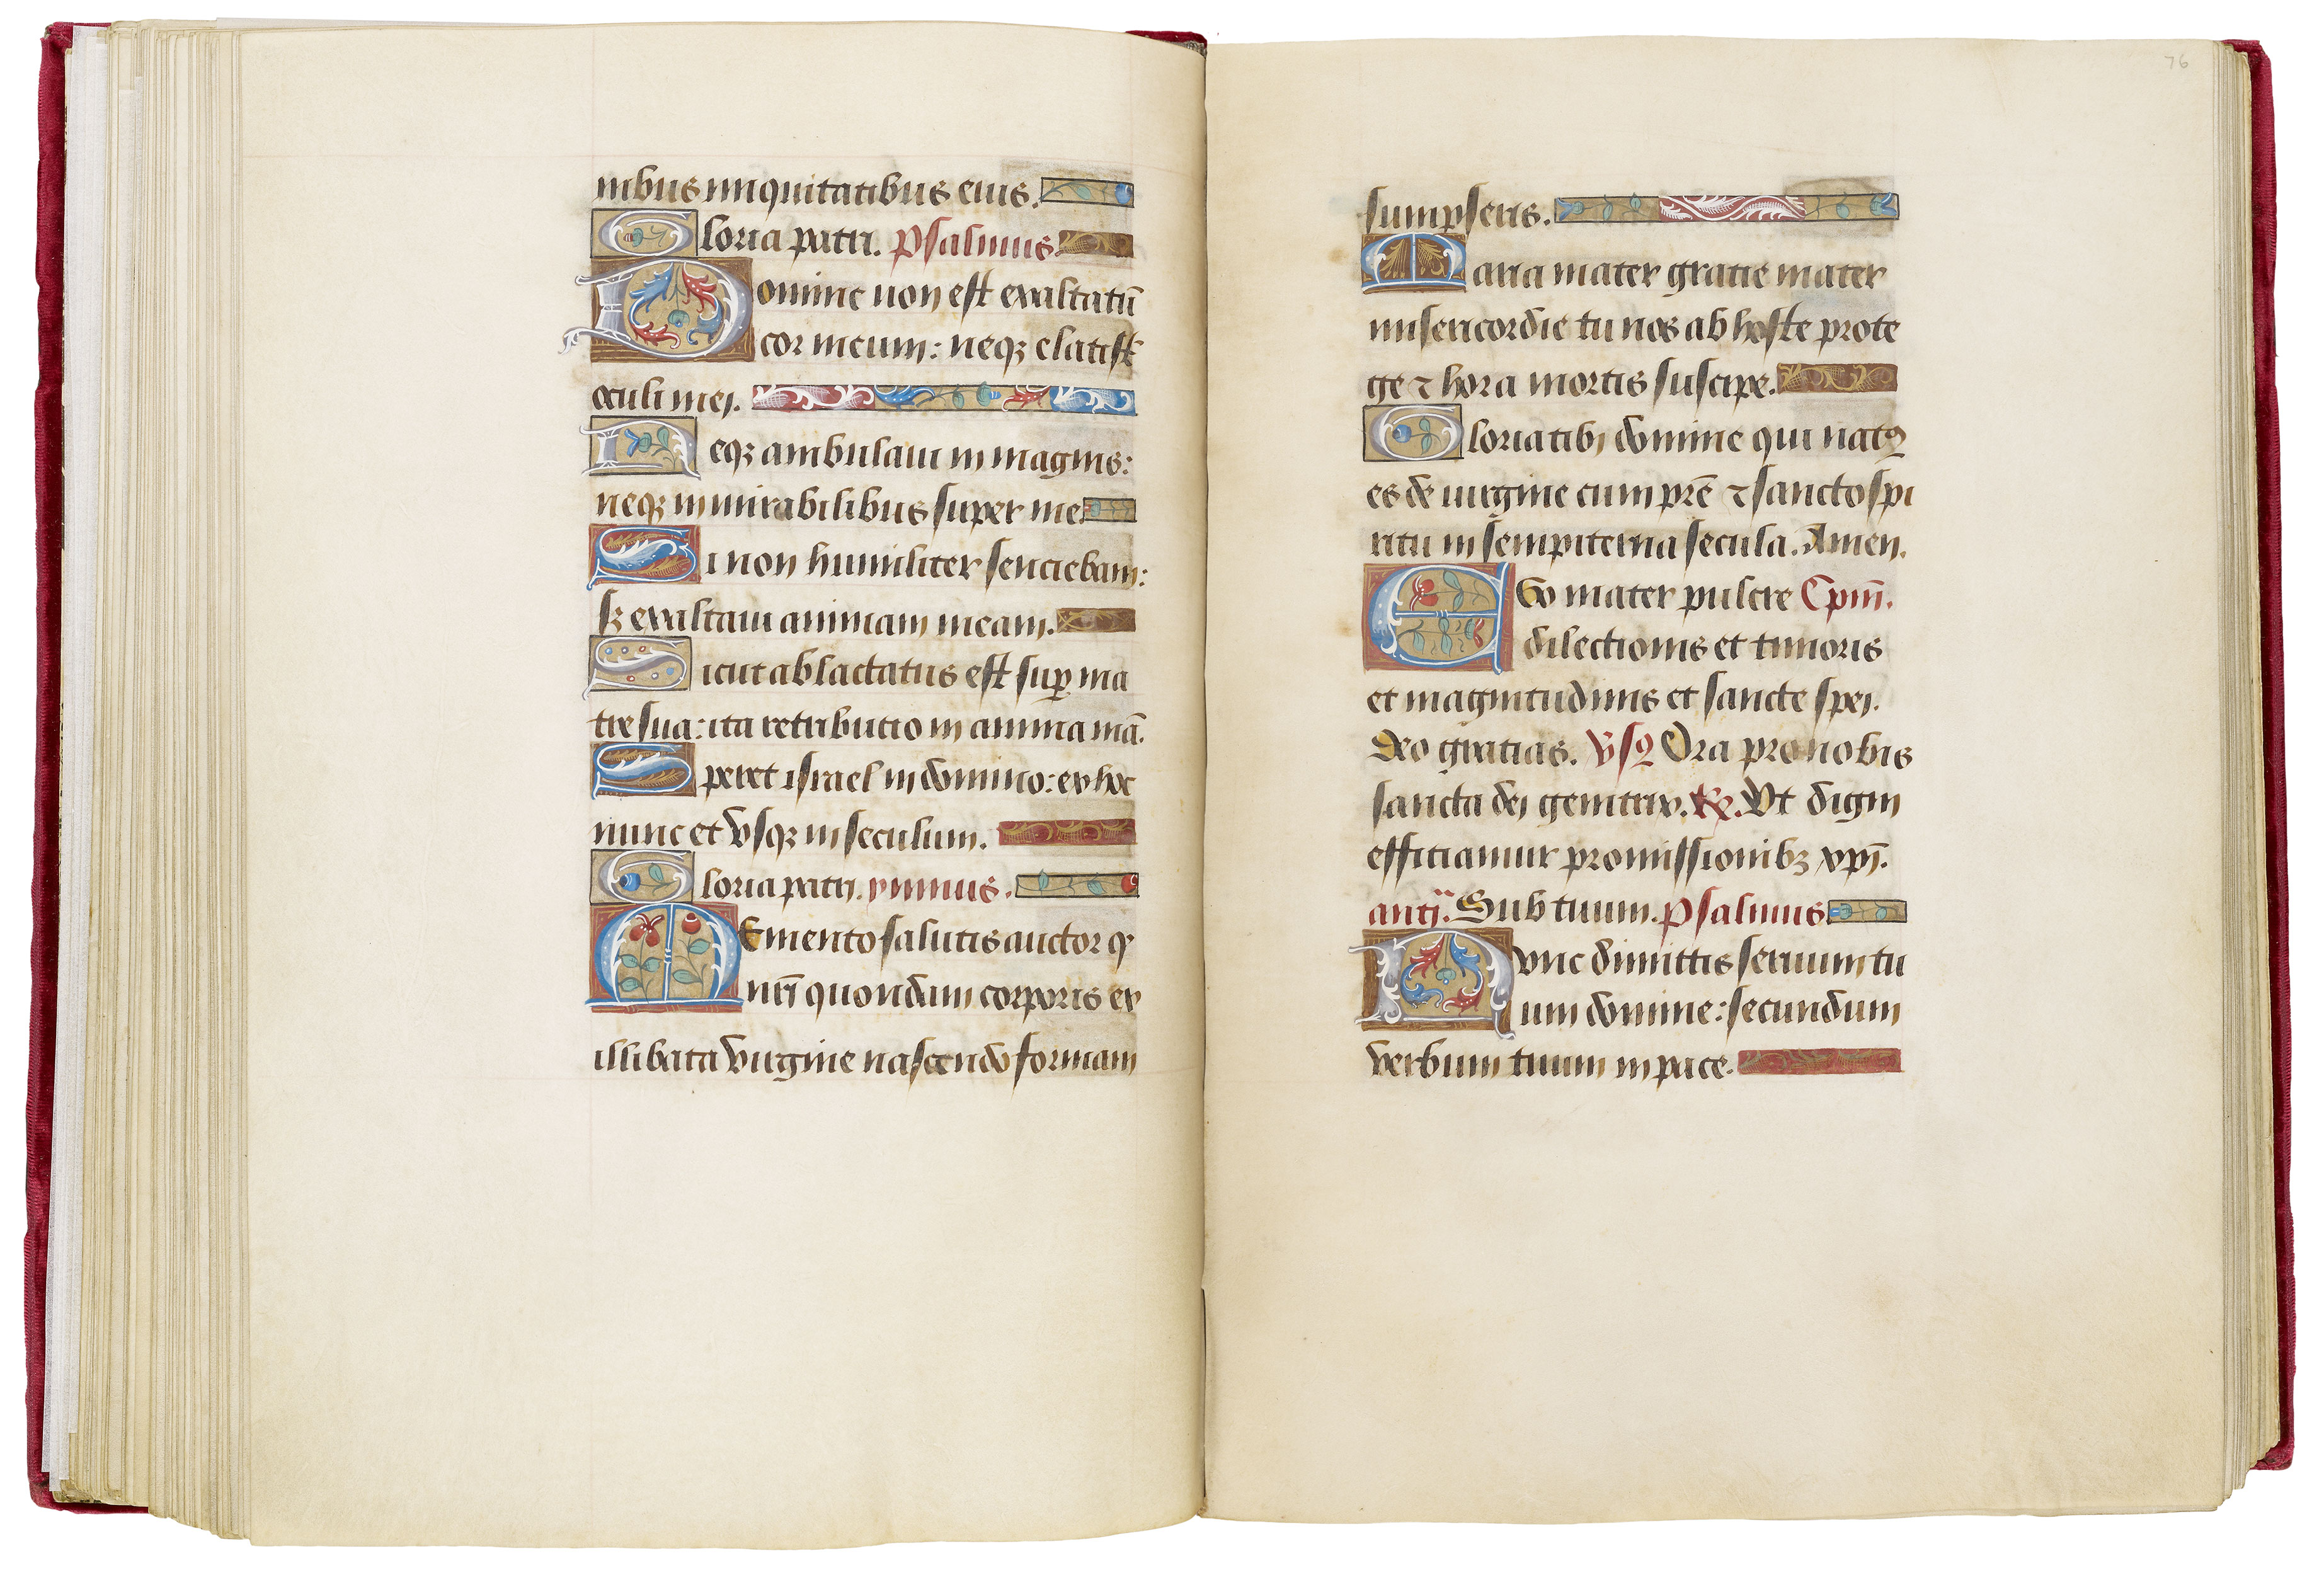 nibus iniquitatibus eius.
Gloria patri. Psalmus.
Domine non est exaltatū
cor meum: neqʒ elati st̄
oculi mei.
Neqʒ ambulaui in magnis:
neqʒ in mirabilibus super me.
Si non humiliter sentiebam:
sʒ exaltaui animam meam.
Sicut ablactatus est suꝑ ma
tre sua: ita retributio in anima mā.
Speret israel in domino: ex hoc
nunc et vsqʒ in seculum.
Gloria patri. ymnus.
Memento salutis auctor ꝙ
nr̄i quondam corporis ex
illibata virgine nascendo formam
sumpseris.
Maria mater gratie mater
misericordie tu nos ab hoste prote
ge ⁊ hora mortis suscipe.
Gloria tibi domine qui natꝰ
es de uirgine cum pr̄e ⁊ sancto spi
ritu in sempiterna secula. Amen.
Ego mater pulcre Cpm̄.
dilectionis et timoris
et magnitudinis et sancte spei.
Deo gratias. v̄sꝰ Ora pro nobis
sancta dei genitrix. ℟. Vt digni
efficiamur promissionibʒ xpī.
antī. Sub tuum. Psalmus
Nvnc dimittis seruum tu
um domine: secundum
verbum tuum in pace.
76